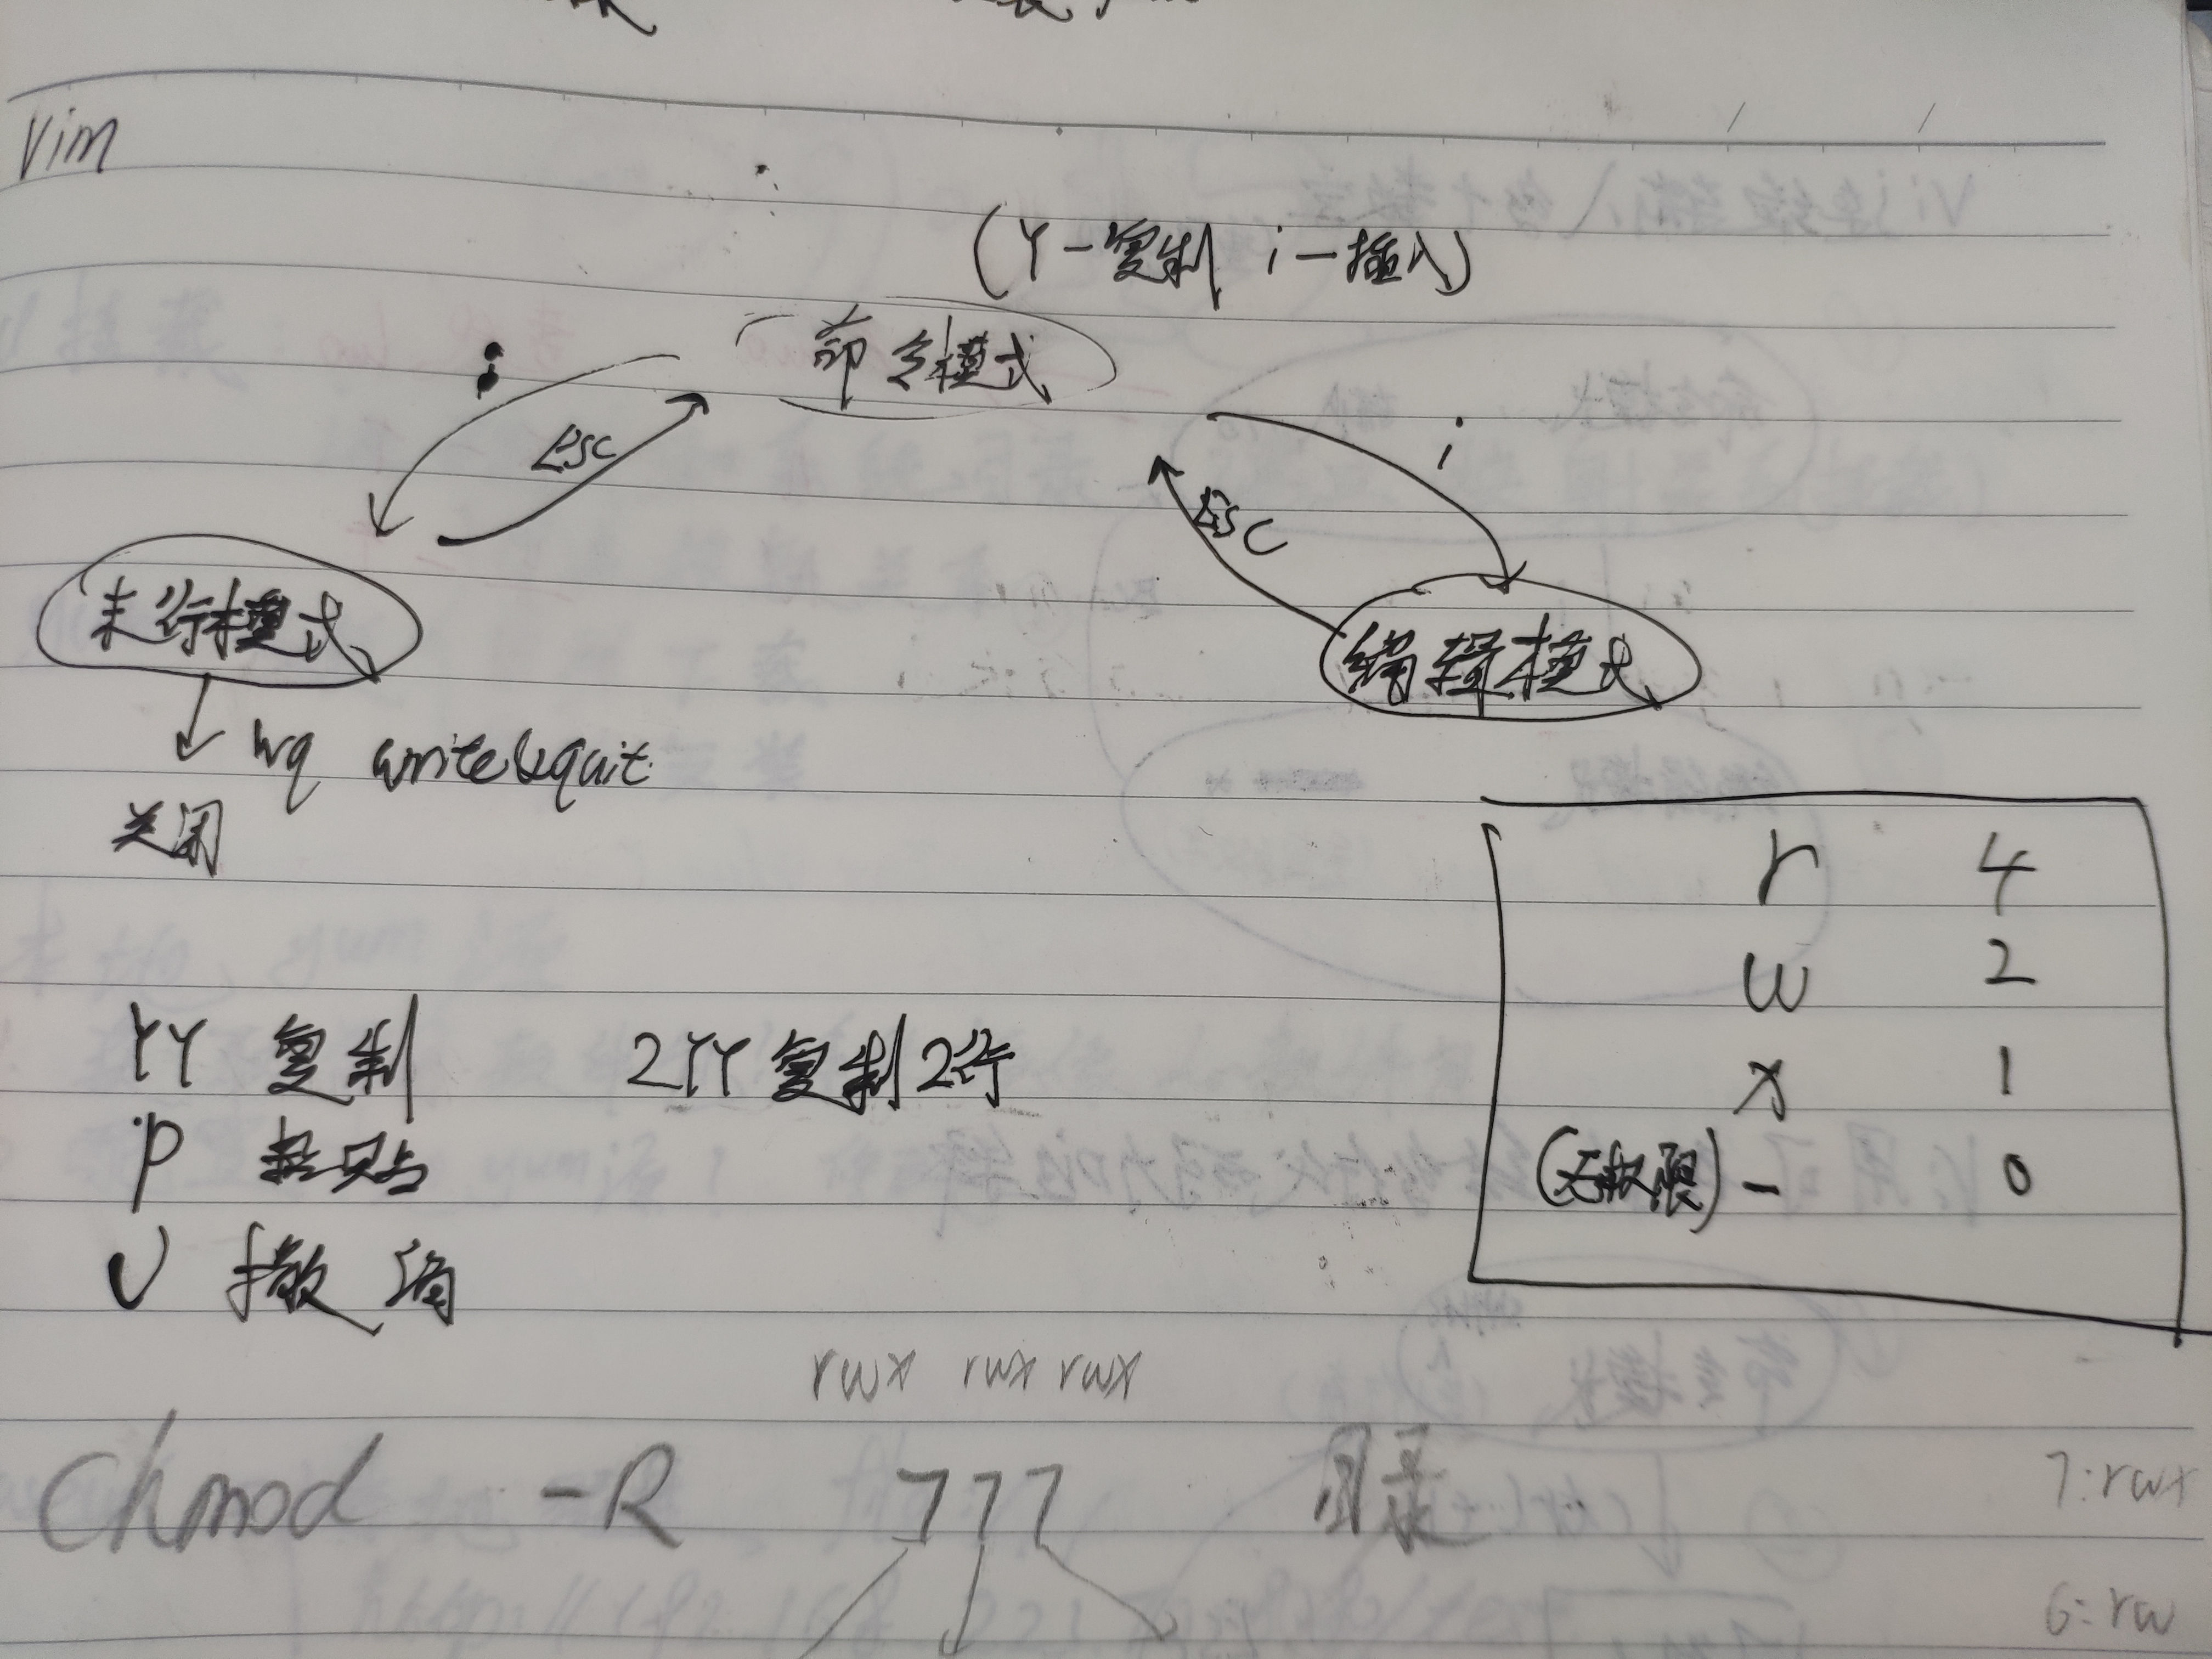 Vim
(Y-复制 i-插入)
命令模式
:
ESC
i
ESC
末行模式
编辑模式
wq write&quit
关闭
r 4
w 2
x 1
(无权限) - 0
YY 复制 2YY 复制2行
P 粘贴
U 撤消
rwx rwx rwx
Chmod -R 777 目录
7:rwx
6:rw